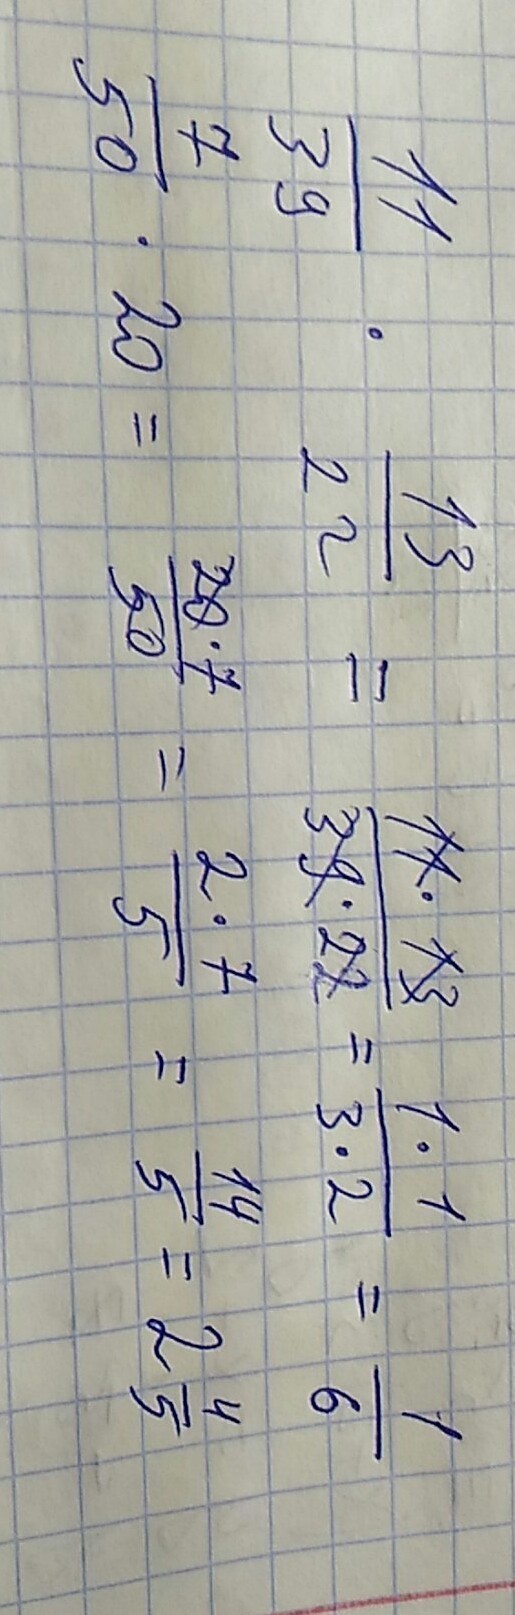 11/39 · 13/22 = 11·13/39·22 = 1·1/3·2 = 1/6
7/50 · 20 = 20·7/50 = 2·7/5 = 14/5 = 2 4/5